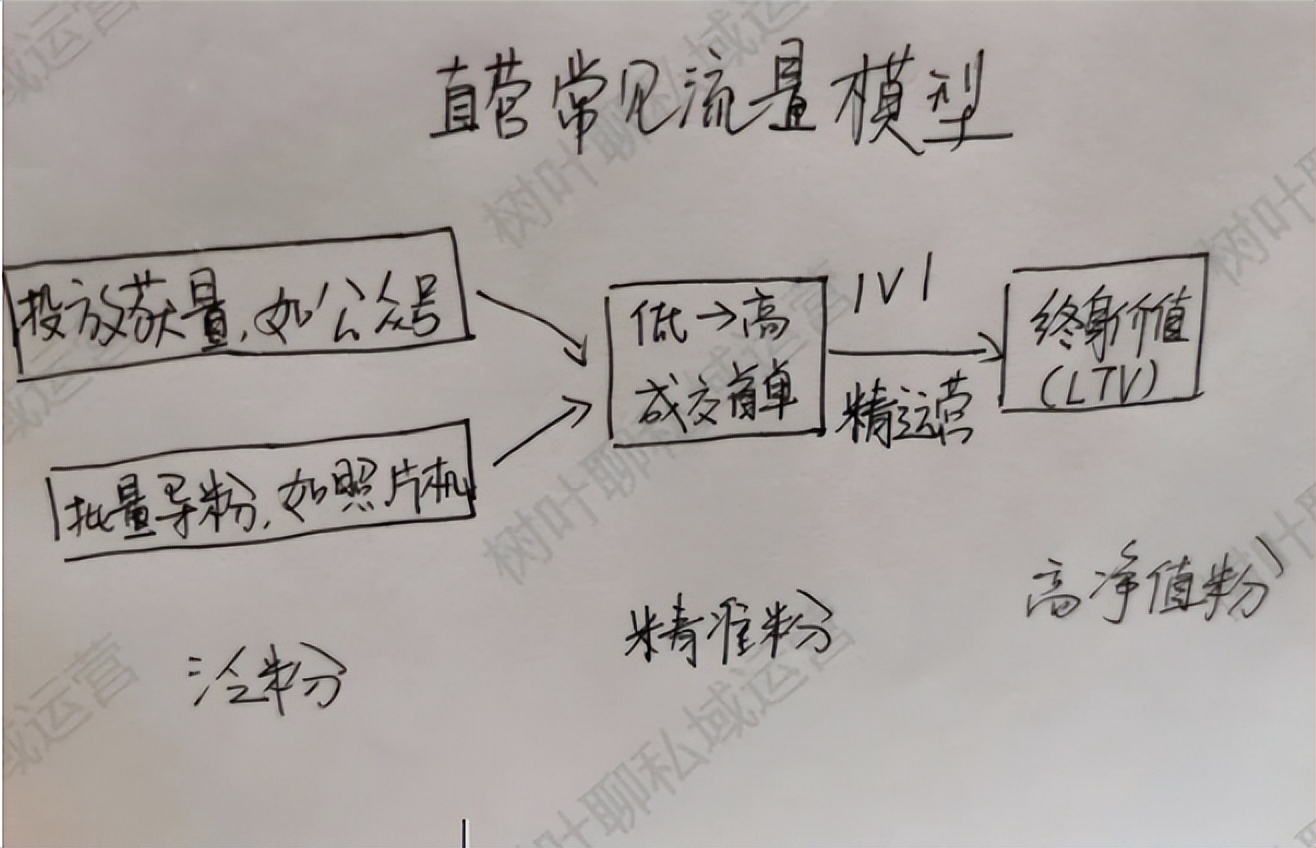 直营常见流量模型
投放获量,如公众号
批量导粉,如照片机
低→高
成交首单
1V1
精运营
终身价值
(LTV)
冷粉
精准粉
高净值粉
树叶聊私域运营